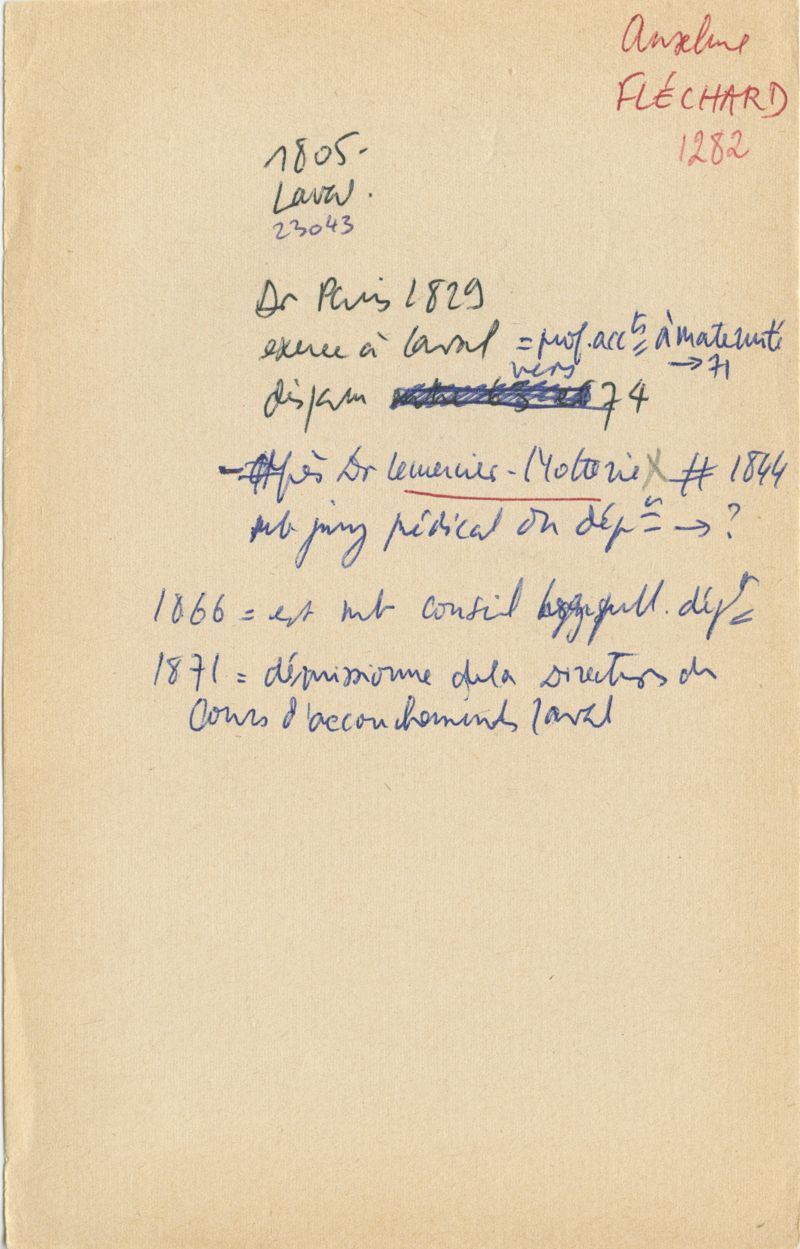 Anselme
FLÉCHARD
1282
1805-
Laval.
23043
Dr Paris 1829
exerce à Laval = prof. acc^ts à maternité
→ 71
disparu vers 74
Dr Lemercier-Motterie X # 1844
mb jury médical du dép^t → ?
1866 = est mb conseil dép^t
1871 = démissionne de la Direction du
Cours d'accouchements Laval